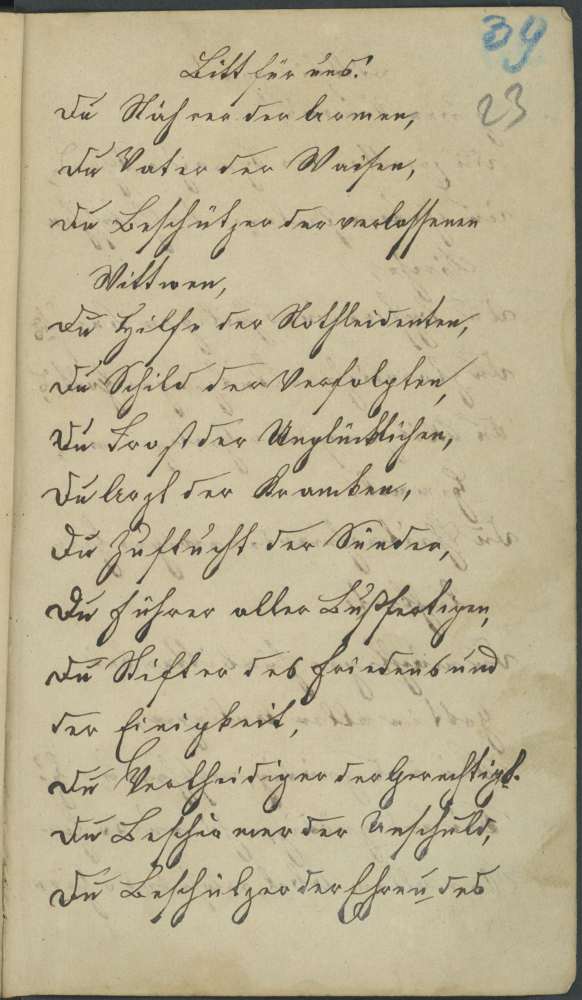 39
23
Bitt für uns!
Du Nährer der Armen,
Du Vater der Waisen,
Du Beschützer der verlassenen
Wittwen,
Du Hilfe der Nothleidenten,
Du Schild der Verfolgten,
Du Trost der Unglücklichen,
Du Arzt der Kranken,
Du Zuflucht der Sünder,
Du Führer aller Bußfertigen,
Du Stifter des Friedens und
der Einigkeit,
Du Vertheidiger der Gerechtigk.
Du Beschirmer der Unschuld,
Du Beschützer der Ehre u des